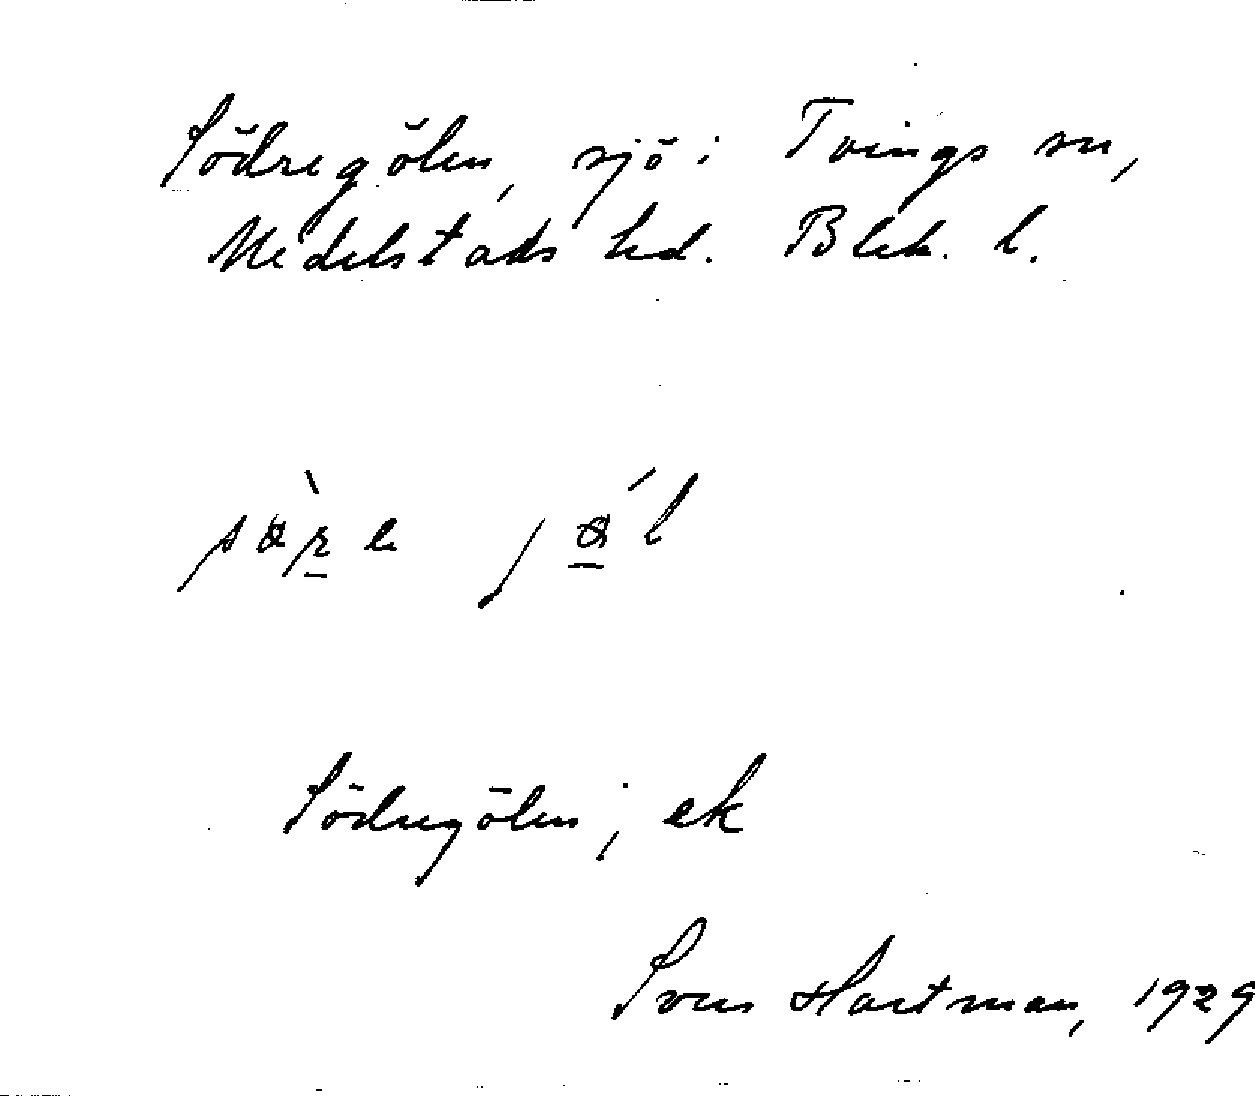 Södregölen, sjö i Tvings sn,
Medelstads hd. Blek. l.
Södregölen; ek
Sven Hartman, 1929